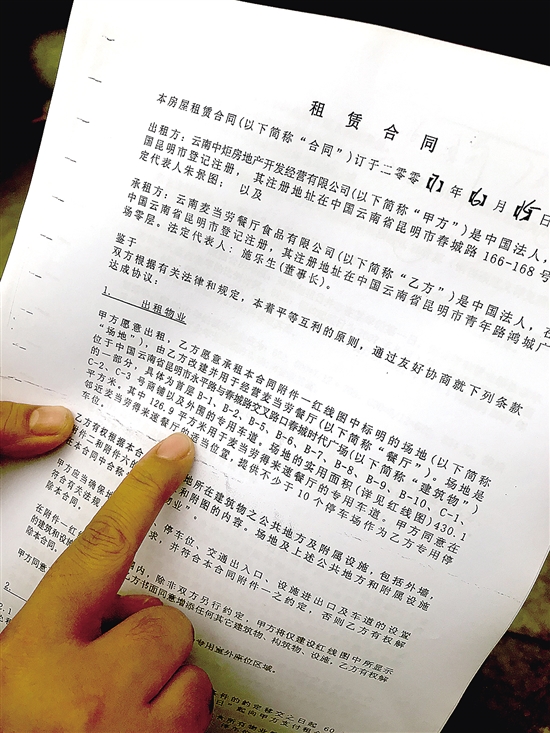 租 赁 合 同
本房屋租赁合同(以下简称“合同”)订于二零零 年 月 日
出租方：云南中炬房地产开发经营有限公司(以下简称“甲方”)是中国法人，
国昆明市登记注册，其注册地址在中国云南省昆明市春城路 166-168 号
定代表人朱景图； 以及
承租方：云南麦当劳餐厅食品有限公司(以下简称“乙方”)是中国法人，在
中国云南省昆明市登记注册，其注册地址在中国云南省昆明市青年路鸿城广
场零层。法定代表人：施乐生(董事长)。
鉴于
双方根据有关法律和规定，本着平等互利的原则，通过友好协商就下列条款
达成协议：
1. 出租物业
甲方愿意出租，乙方愿意承租本合同附件一红线图中标明的场地(以下简称
“场地”)，由乙方改建并用于经营麦当劳餐厅(以下简称“餐厅”)。场地是
位于中国云南省昆明市永平路与春城路交叉路口春城时代广场(以下简称“建筑物”)
的一部分，具体为首层 B-1、B-2、B-5、B-6、B-7、B-8、B-9、B-10、C-1、
C-2、C-3 号商铺以及外围的专用车道。场地的实用面积(详见红线图)430.1
平方米，其中 126.9 平方米用于麦当劳得来速餐厅的专用车道。甲方同意在
邻近麦当劳得来速餐厅的适当位置，提供不少于 10 个停车场作为乙方专用停
车位。
乙方有权根据本合
地所在建筑物之公共地方及附属设施，包括外墙，
附件二和附件六的
和附图的内容。场地及上述公共地方和附属设施
在本合同中合称
业”。
甲方应当确保
、停车位、交通出入口、设施进出口及车道的设置
符合有关法规
求，并符合本合同附件一之约定，否则乙方有权解
除本合同。
在附件一红
内，除非双方另行约定，甲方将仅建设红线图中所显示
的建筑和设施
乙方书面同意增添任何其它建筑物、构筑物、设施，乙方有权解
除本合同。
甲方同意
专用室外座位区域。
2.
2.1
件的约定移交之日起 60
日”起向甲方支付租